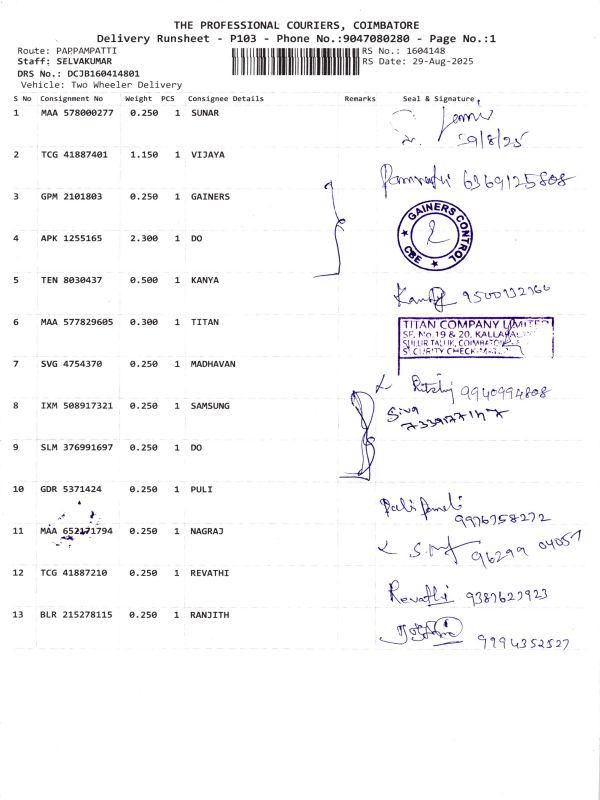 THE PROFESSIONAL COURIERS, COIMBATORE
Delivery Runsheet - P103 - Phone No.:9047080280 - Page No.:1
Route: PAPPAMPATTI RS No.: 1604148
Staff: SELVAKUMAR RS Date: 29-Aug-2025
DRS No.: DCJB160414801
Vehicle: Two Wheeler Delivery
S No Consignment No Weight PCS Consignee Details Remarks Seal & Signature
1 MAA 578000277 0.250 1 SUNAR
29/8/25
2 TCG 41887401 1.150 1 VIJAYA
6369125808
3 GPM 2101803 0.250 1 GAINERS
GAINERS CONTROL
CBE
4 APK 1255165 2.300 1 DO
5 TEN 8030437 0.500 1 KANYA
6 MAA 577829605 0.300 1 TITAN
TITAN COMPANY LIMITED
SF. No.19 & 20, KALLAPAL
SULUR TALUK, COIMBATORE
SECURITY CHECK
7 SVG 4754370 0.250 1 MADHAVAN
9940994808
8 IXM 508917321 0.250 1 SAMSUNG
Siva
9 SLM 376991697 0.250 1 DO
10 GDR 5371424 0.250 1 PULI
9976758272
11 MAA 652171794 0.250 1 NAGRAJ
96299 04057
12 TCG 41887210 0.250 1 REVATHI
Revathi 9387623923
13 BLR 215278115 0.250 1 RANJITH
9994352527